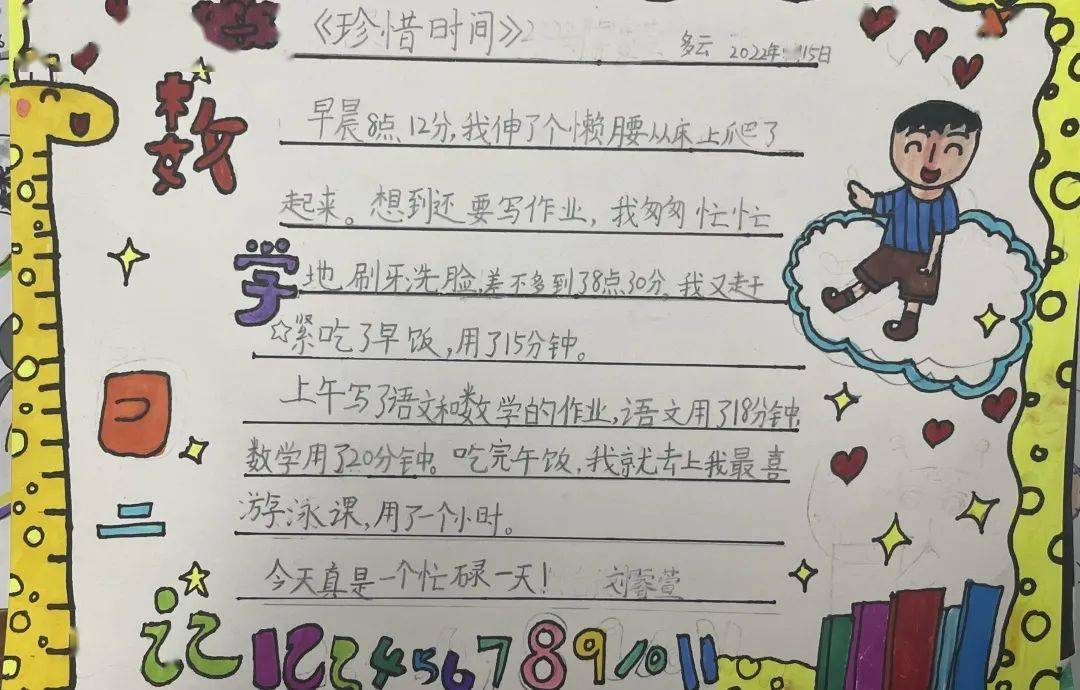 《珍惜时间》
多云 2022年 15日
早晨8点12分,我伸了个懒腰从床上爬了
起来。想到还要写作业,我匆匆忙忙
地刷牙洗脸,差不多到了8点30分,我又赶
紧吃了早饭,用了15分钟。
上午写了语文和数学的作业,语文用了18分钟,
数学用了20分钟。吃完午饭,我就去上我最喜
游泳课,用了一个小时。
今天真是一个忙碌一天!
数
学
日
记
4 5 6 7 8 9 10 11